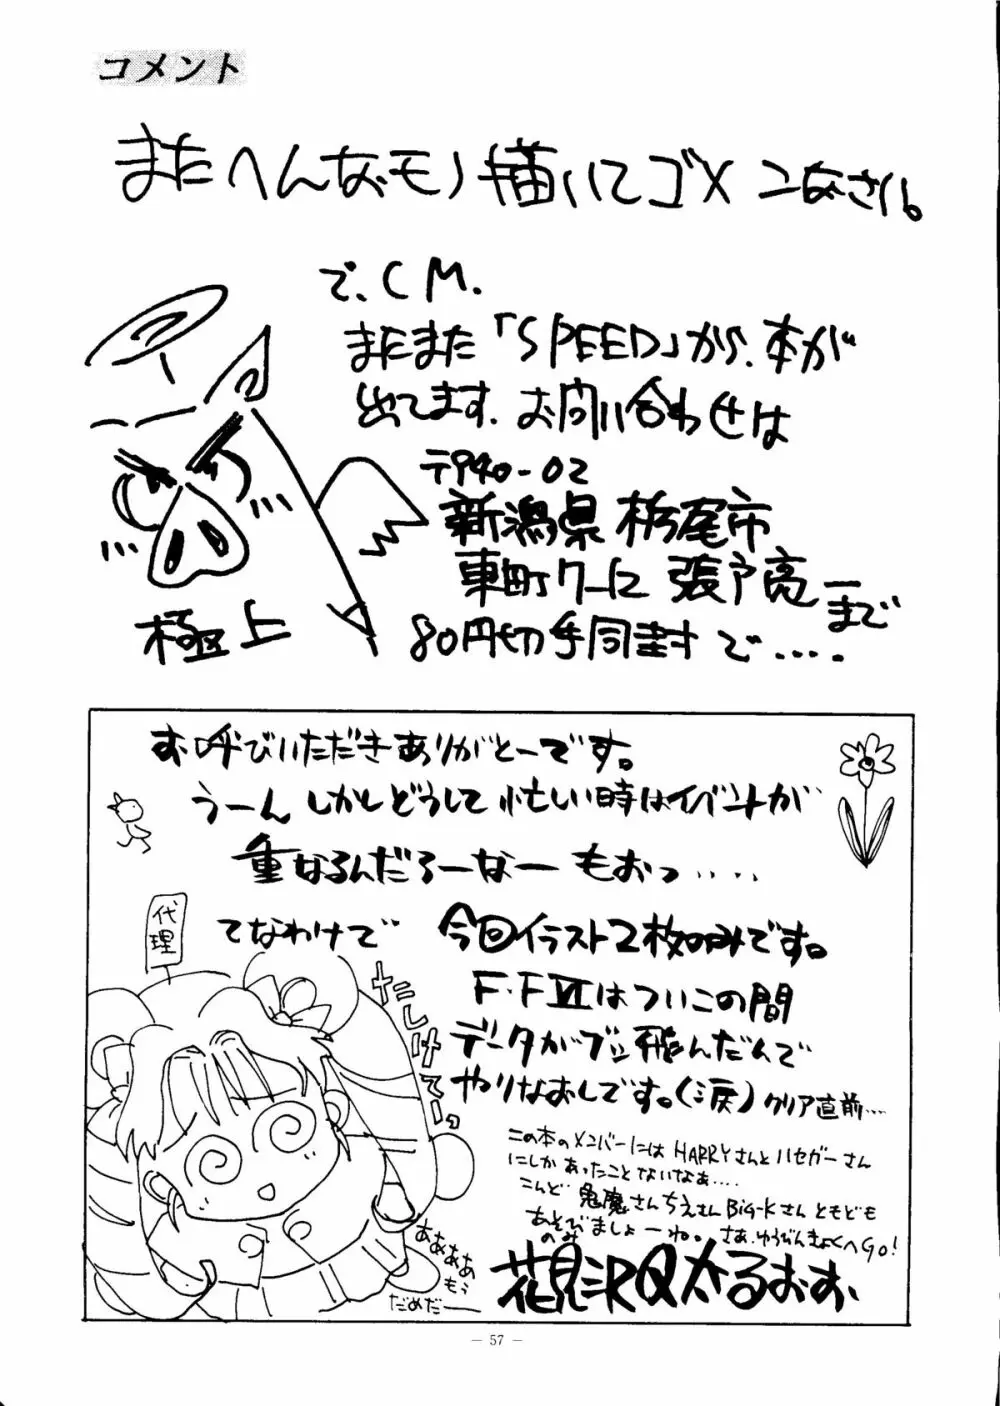 コメント
またへんなモノ描いてゴメンなさい。
で、CM.
またまた「SPEED」から、本が
出てます。お問い合わせは
〒940-02
新潟県 栃尾市
東町7-12 張戸亮一まで
80円切手同封で‥‥
極上
お呼びいただきありがとーです。
うーん しかしどうして 忙しい時はイベントが
重なるんだろーなー もおっ‥‥
代理
てなわけで 今回イラスト2枚のみです。
F.FⅥはついこの間
データがブッ飛んだんで
やりなおしです。(涙) クリア直前‥‥
たしけてーっ
この本のメンバーには HARRYさんと ハセガーさん
にしか あったことないなぁ‥‥
こんど 鬼魔さん ちえさん BiG-Kさん ともども
あそびましょーね。 さあ、ゆうびんきょくへGO!
のみ
ああああ
もう
だめだー
花見沢Q太るおす
— 57 —